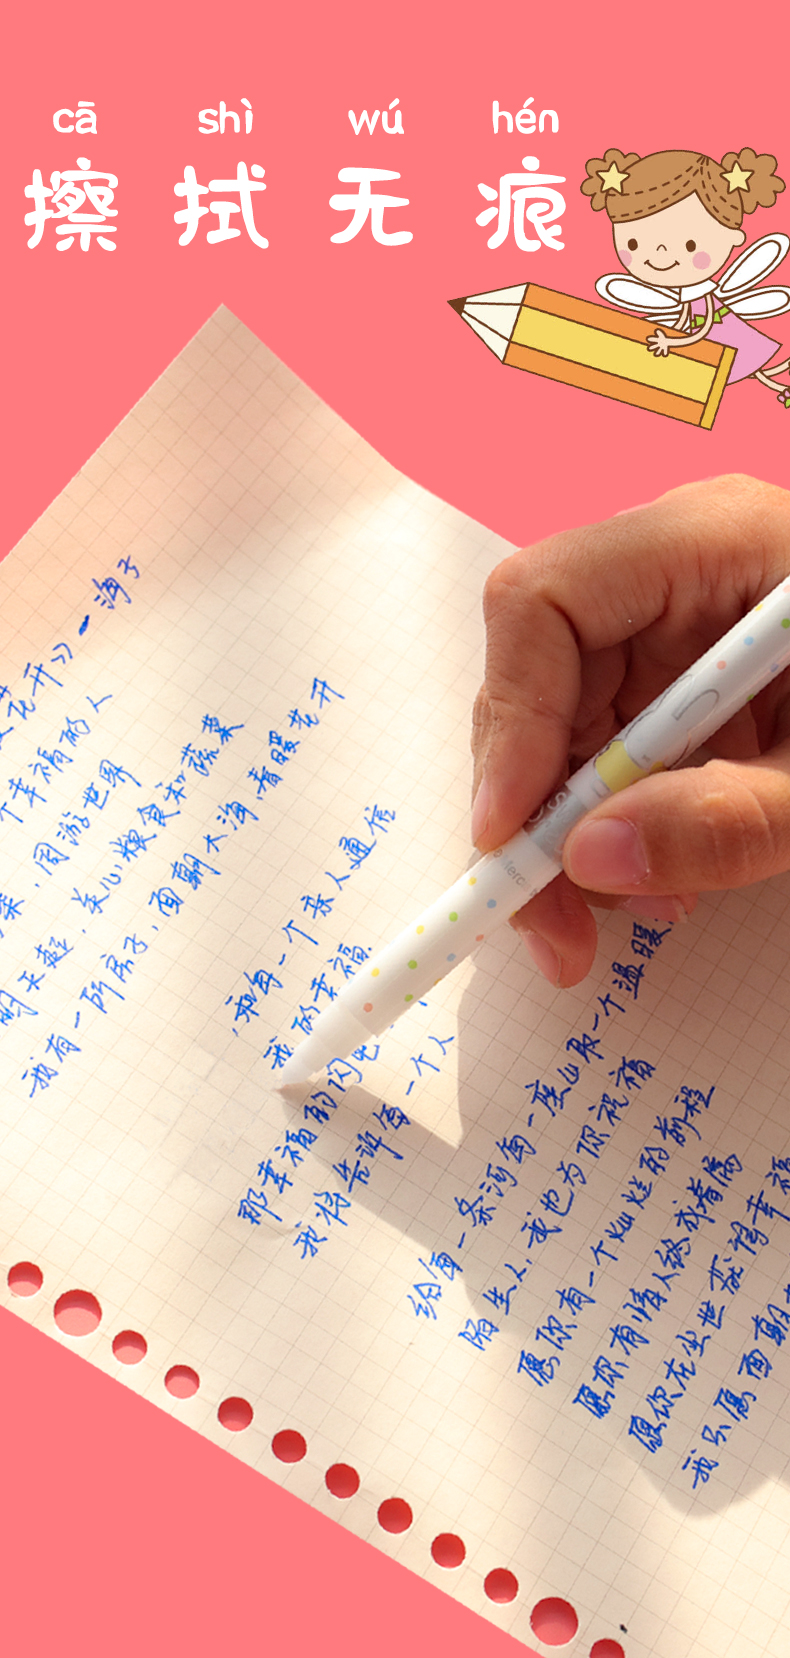 cā shì wú hén
擦拭无痕
花开》一海子
个幸福的人
，周游世界
明天起，关心粮食和蔬菜
我有一所房子，面朝大海，春暖花开
，和每一个亲人通信
我的幸福
那幸福的闪电
我将告诉每一个人
给每一条河每一座山取一个温暖
陌生人，我也为你祝福
愿你有一个灿烂的前程
愿你有情人终成眷属
愿你在尘世获得幸福
我只愿面朝